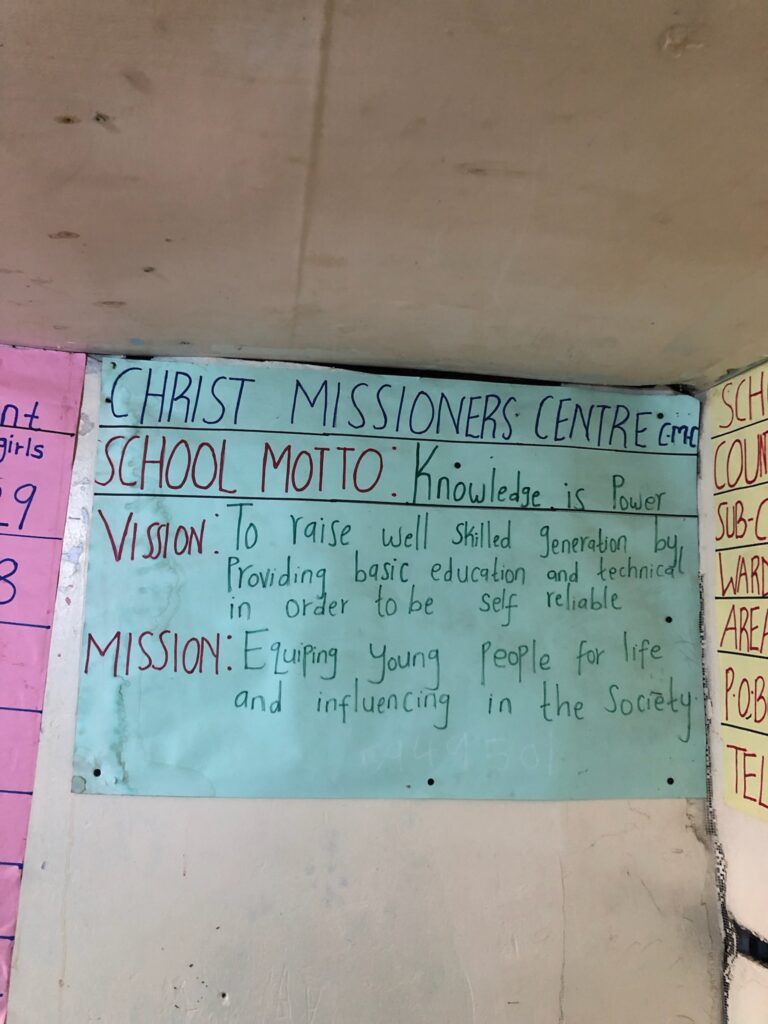 CHRIST MISSIONERS CENTRE C.M.C
SCHOOL MOTTO: Knowledge is Power
VISSION: To raise well skilled generation by
Providing basic education and technical
in order to be self reliable
MISSION: Equiping young people for life
and influencing in the Society.
nt
girls
29
8
SCH
COUN
SUB-C
WARD
AREA
P.O.B
TEL